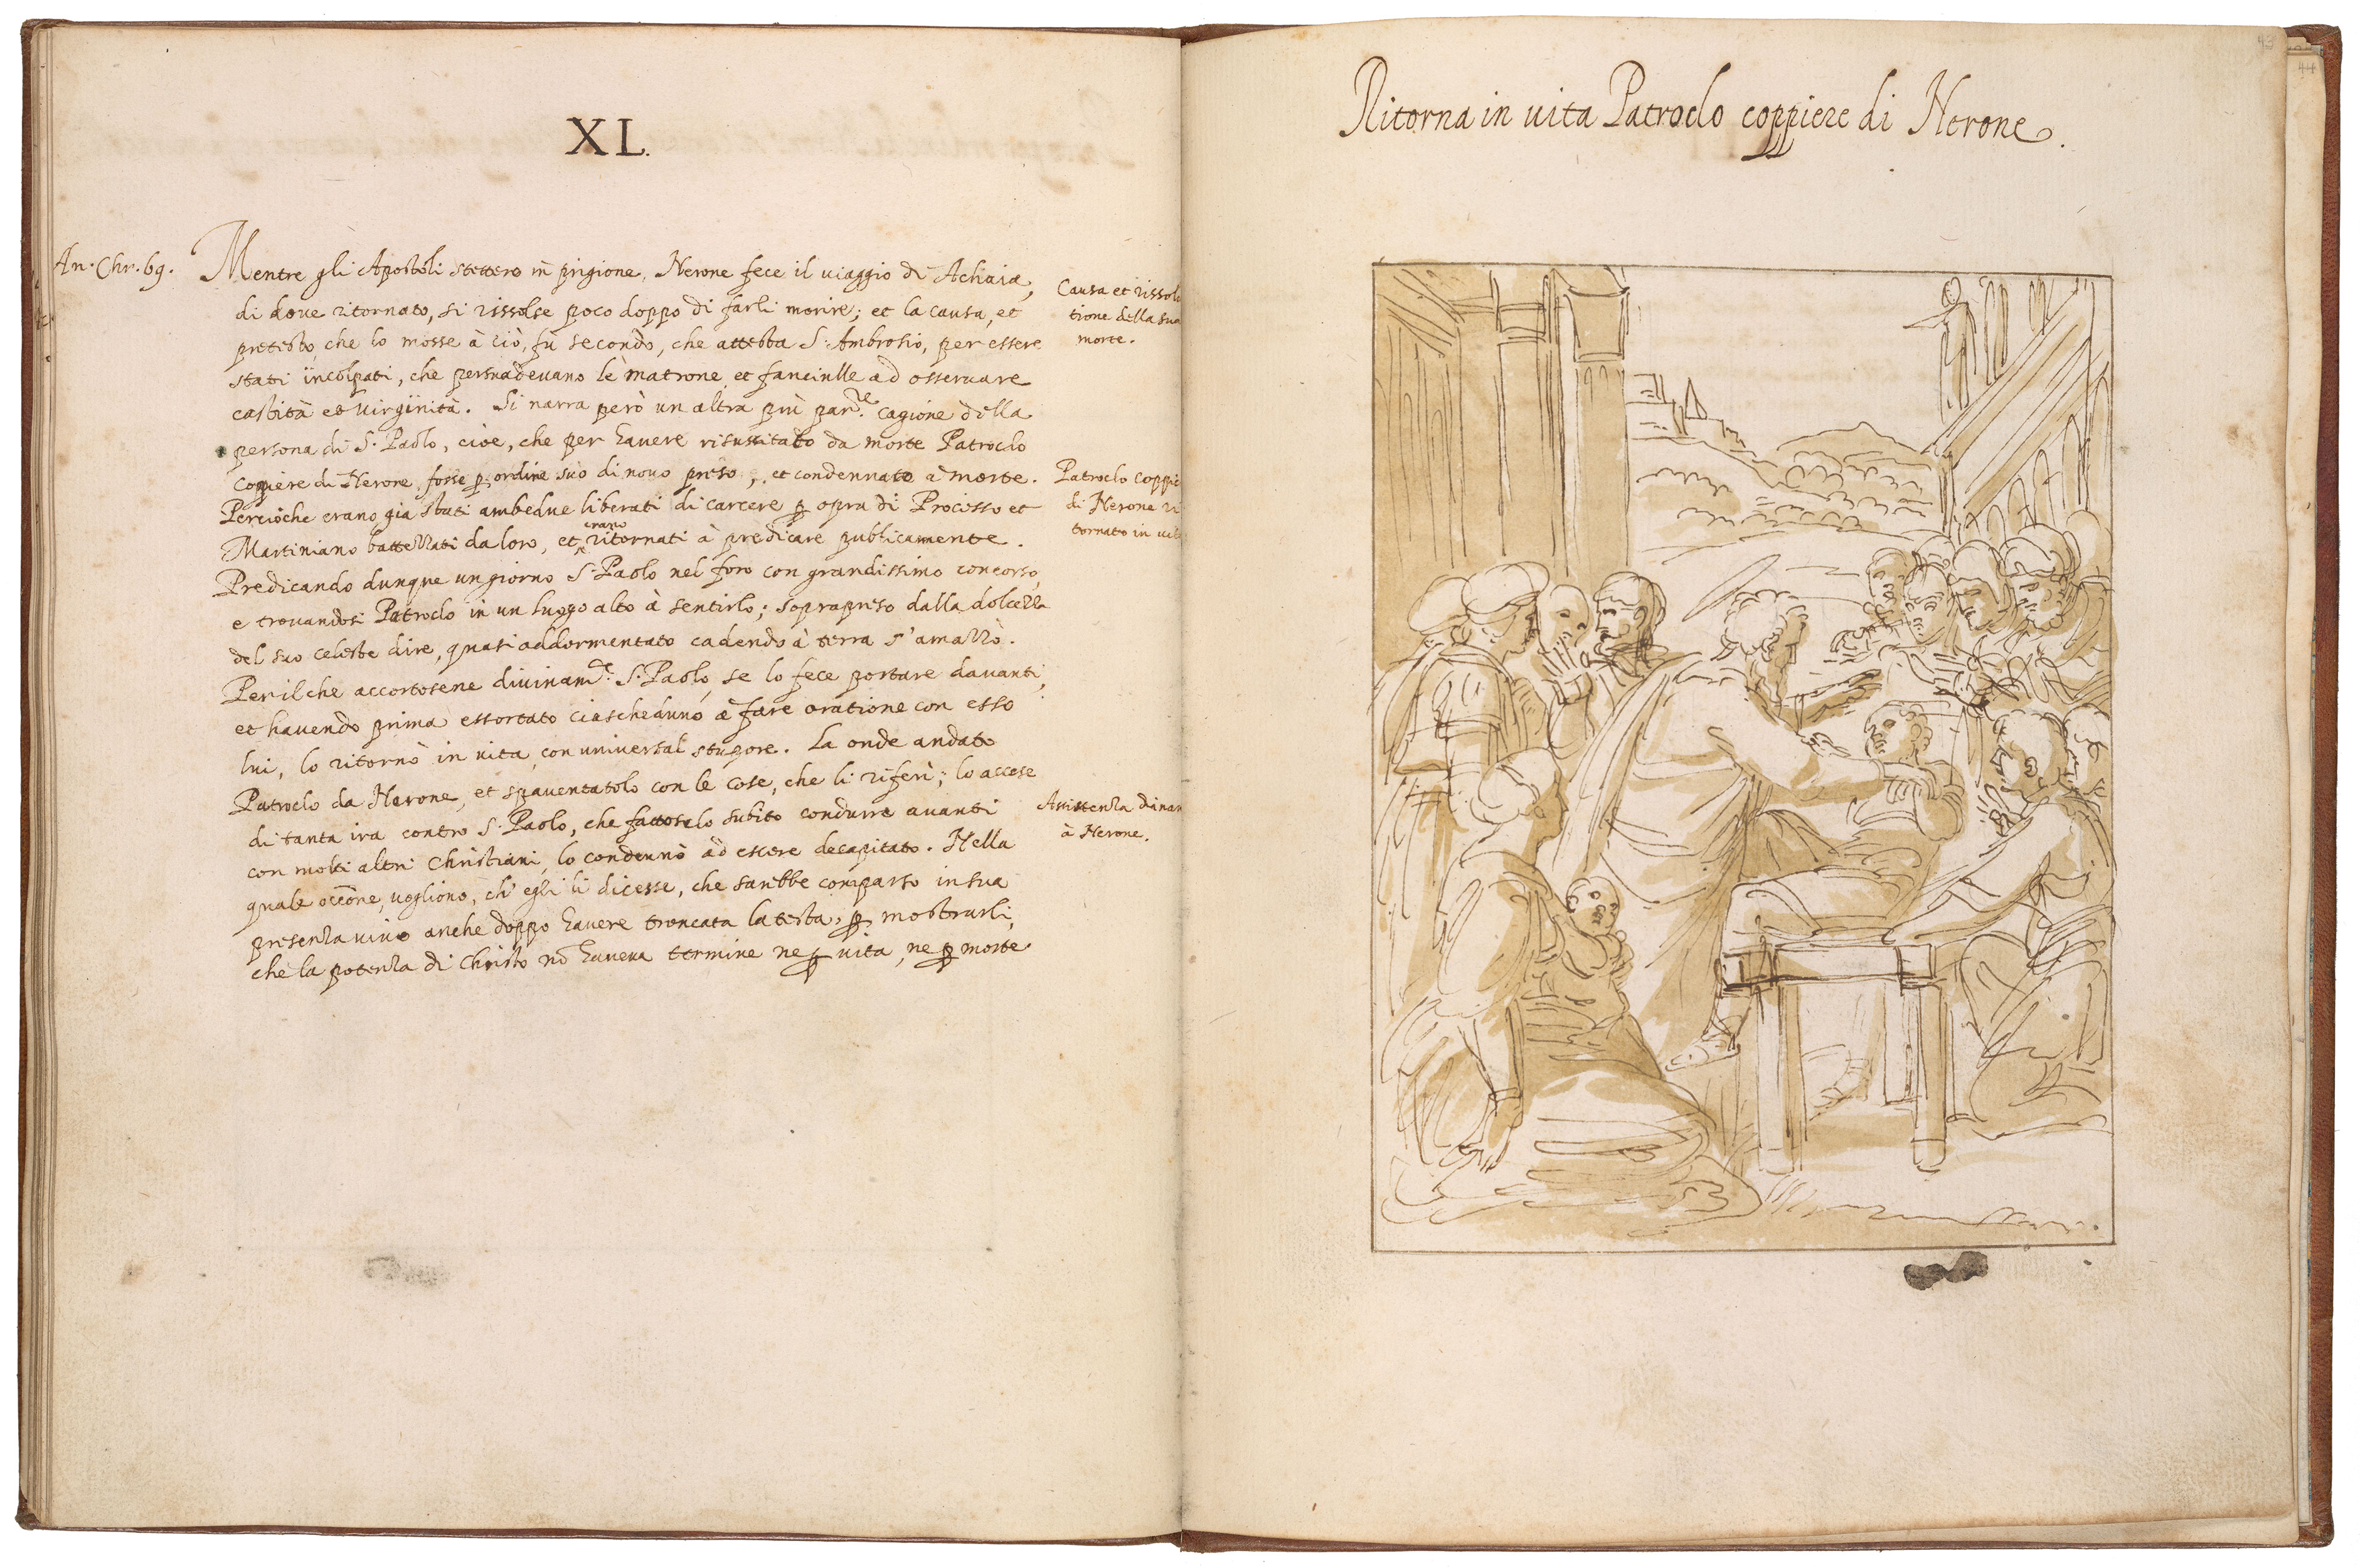 XL.
An. Chr. 69.
Mentre gli Apostoli stettero in prigione, Nerone fece il uiaggio di Achaia,
di doue ritornato, si rissolse poco doppo di farli morire; et la causa, et
pretesto, che lo mosse à ciò, fù secondo, che attesta S. Ambrosio, per essere
stati incolpati, che persuadeuano le matrone et fanciulle ad osseruare
castità et uirginità. Si narra però un altra più par.re cagione della
persona di S. Paolo, cioe, che per hauere risussitato da morte Patroclo
coppiere di Nerone, fosse p ordine suo di nouo preso, et condennato à morte.
Percioche erano gia stati ambedue liberati di carcere p opra di Processo et
Martiniano battezzati da loro, et erano ritornati à predicare publicamente.
Predicando dunque un giorno S. Paolo nel foro con grandissimo concorso,
e trouandosi Patroclo in un luogo alto à sentirlo; soprapreso dalla dolcezza
del suo celeste dire, quasi addormentato cadendo à terra s'amazzò.
Perilche accortosene diuinam.te S. Paolo, se lo fece portare dauanti,
et hauendo prima essortato ciascheduno à fare oratione con esso
lui, lo ritornò in uita, con uniuersal stupore. La onde andato
Patroclo da Nerone, et spauentatolo con le cose, che li riferì; lo accese
di tanta ira contro S. Paolo, che fattoselo subito condurre auanti
con molti altri Christiani, lo condennò ad essere decapitato. Nella
quale occõne, uogliono, ch' egli li dicesse, che sarebbe comparso in sua
presenza uiuo anche doppo hauere troncata la testa, p mostrarli,
che la potenza di Christo nõ haueua termine ne p uita, ne p morte.
Causa et rissolu
tione della sua
morte.
Patroclo coppie
di Nerone ri
tornato in uita
Assistenza dinan
à Nerone.
Ritorna in uita Patroclo coppiere di Nerone.
43
44